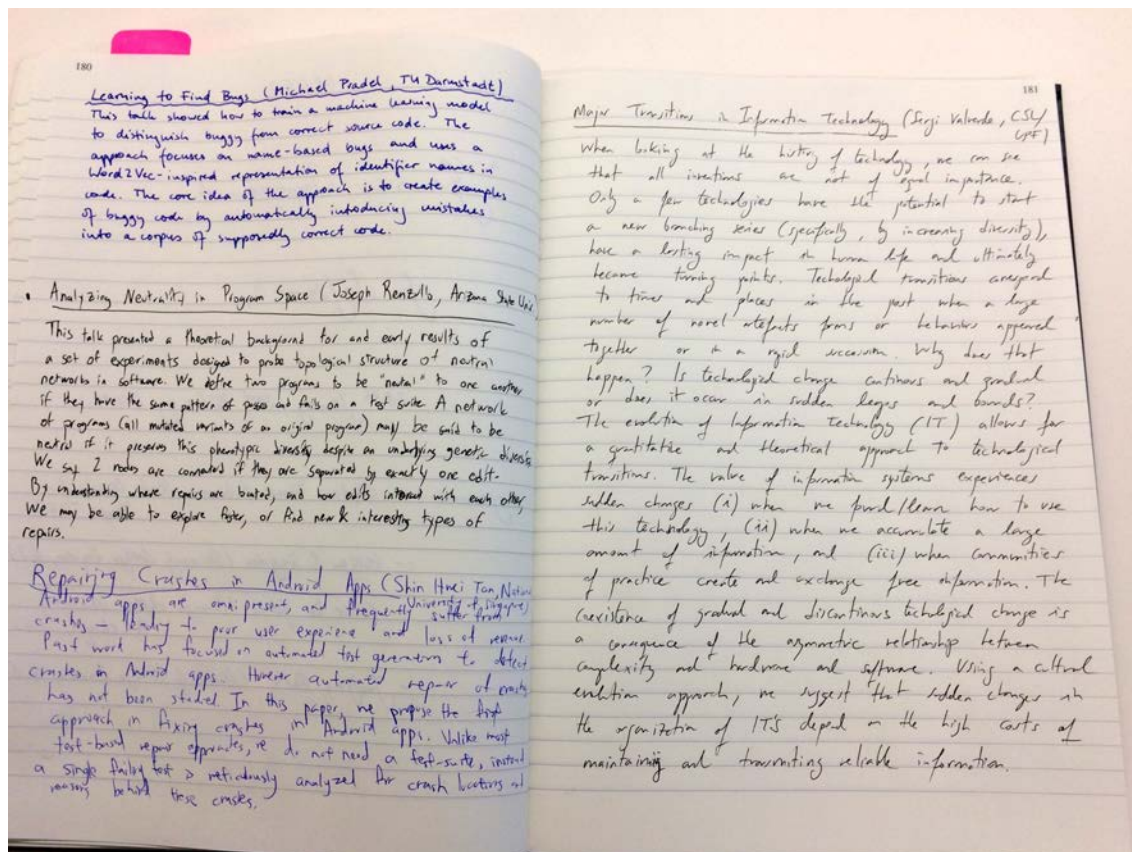 180
Learning to Find Bugs (Michael Pradel, TU Darmstadt)
This talk showed how to train a machine learning model
to distinguish buggy from correct source code. The
approach focuses on name-based bugs and uses a
Word2Vec-inspired representation of identifier names in
code. The core idea of the approach is to create examples
of buggy code by automatically introducing mistakes
into a corpus of supposedly correct code.
• Analyzing Neutrality in Program Space (Joseph Renzullo, Arizona State Univ.)
This talk presented a theoretical background for and early results of
a set of experiments designed to probe topological structure of neutral
networks in software. We define two programs to be "neutral" to one another
if they have the same pattern of passes and fails on a test suite. A network
of programs (all mutated variants of an original program) may be said to be
neutral if it preserves this phenotypic diversity despite an underlying genetic diversity
We say 2 nodes are connected if they are separated by exactly one edit.
By understanding where repairs are located, and how edits interact with each other,
We may be able to explore faster, or find new & interesting types of
repairs.
Repairing Crashes in Android Apps (Shin Hwei Tan, National
University of Singapore)
Android apps are omnipresent, and frequently suffer from
crashes – leading to poor user experience and loss of revenue.
Past work has focused on automated test generation to detect
crashes in Android apps. However automated repair of crashes
has not been studied. In this paper, we propose the first
approach in fixing crashes in Android apps. Unlike most
test-based repair approaches, we do not need a test-suite, instead
a single failing test is meticulously analyzed for crash locations and
reasons behind these crashes.
181
Major Transitions in Information Technology (Sergi Valverde, CSL/
UPF)
When looking at the history of technology, we can see
that all inventions are not of equal importance.
Only a few technologies have the potential to start
a new branching series (specifically, by increasing diversity),
have a lasting impact in human life and ultimately
became turning points. Technological transitions correspond
to times and places in the past when a large
number of novel artefacts forms or behaviors appeared
together or in a rapid succession. Why does that
happen? Is technological change continous and gradual
or does it occur in sudden leaps and bounds?
The evolution of Information Technology (IT) allows for
a quantitative and theoretical approach to technological
transitions. The value of information systems experiences
sudden changes (i) when we learn how to use
this technology, (ii) when we accumulate a large
amount of information, and (iii) when communities
of practice create and exchange free information. The
coexistence of gradual and discontinous technological change is
a consequence of the asymmetric relationship between
complexity and hardware and software. Using a cultural
evolution approach, we suggest that sudden changes in
the organization of ITS depend on the high costs of
maintaining and transmiting reliable information.